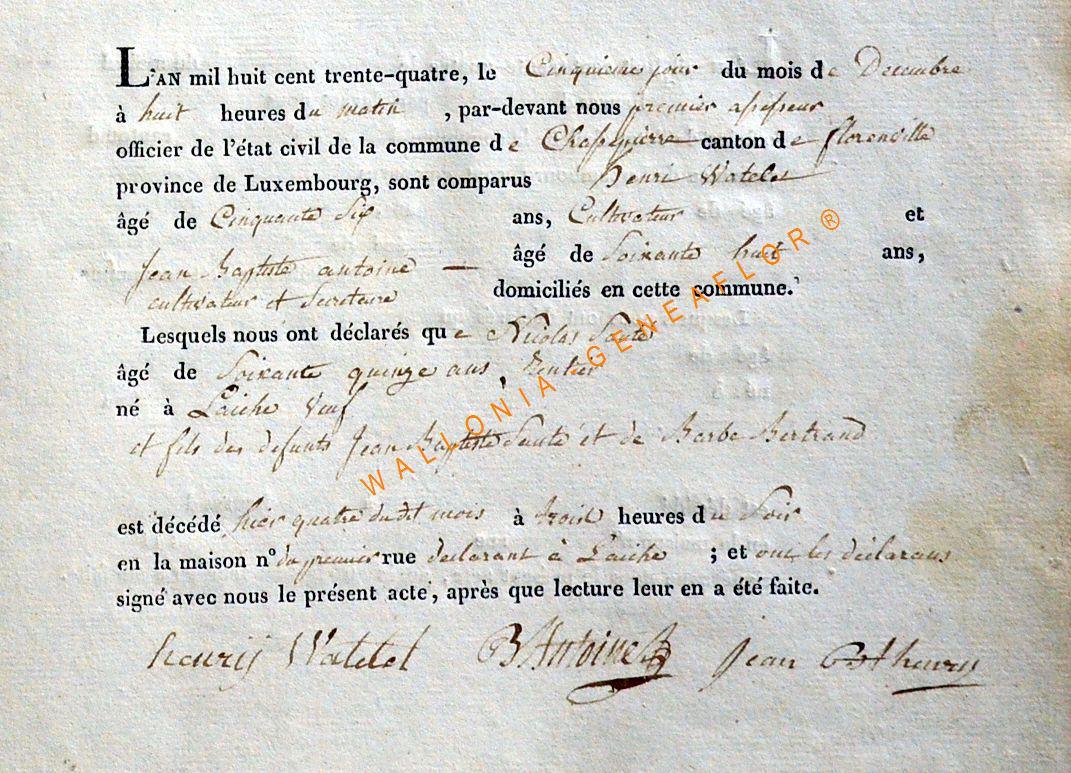 L'AN mil huit cent trente-quatre, le Cinquieme jour du mois de Decembre
à huit heures du matin , par-devant nous premier assesseur
officier de l'état civil de la commune de Chassepierre canton de florenville
province de Luxembourg, sont comparus henri Watelet
âgé de Cinquante Six ans, Cultivateur et
Jean Baptiste antoine — âgé de Soixante huit ans,
cultivateur et Secretaire domiciliés en cette commune.
Lesquels nous ont déclarés que Nicolas
âgé de Soixante quinze ans, Rentier
né à Laiche Veuf
et fils des defunts Jean Baptiste et de Barbe Bertrand
est décédé hier quatre dudit mois à trois heures du Soir
en la maison n° du premier rue declarant à Laiche ; et ont les déclarans
signé avec nous le présent acte, après que lecture leur en a été faite.
henrij Watelet B Antoine Jean Bt henry
WALLONIA GENEAFLOR ®